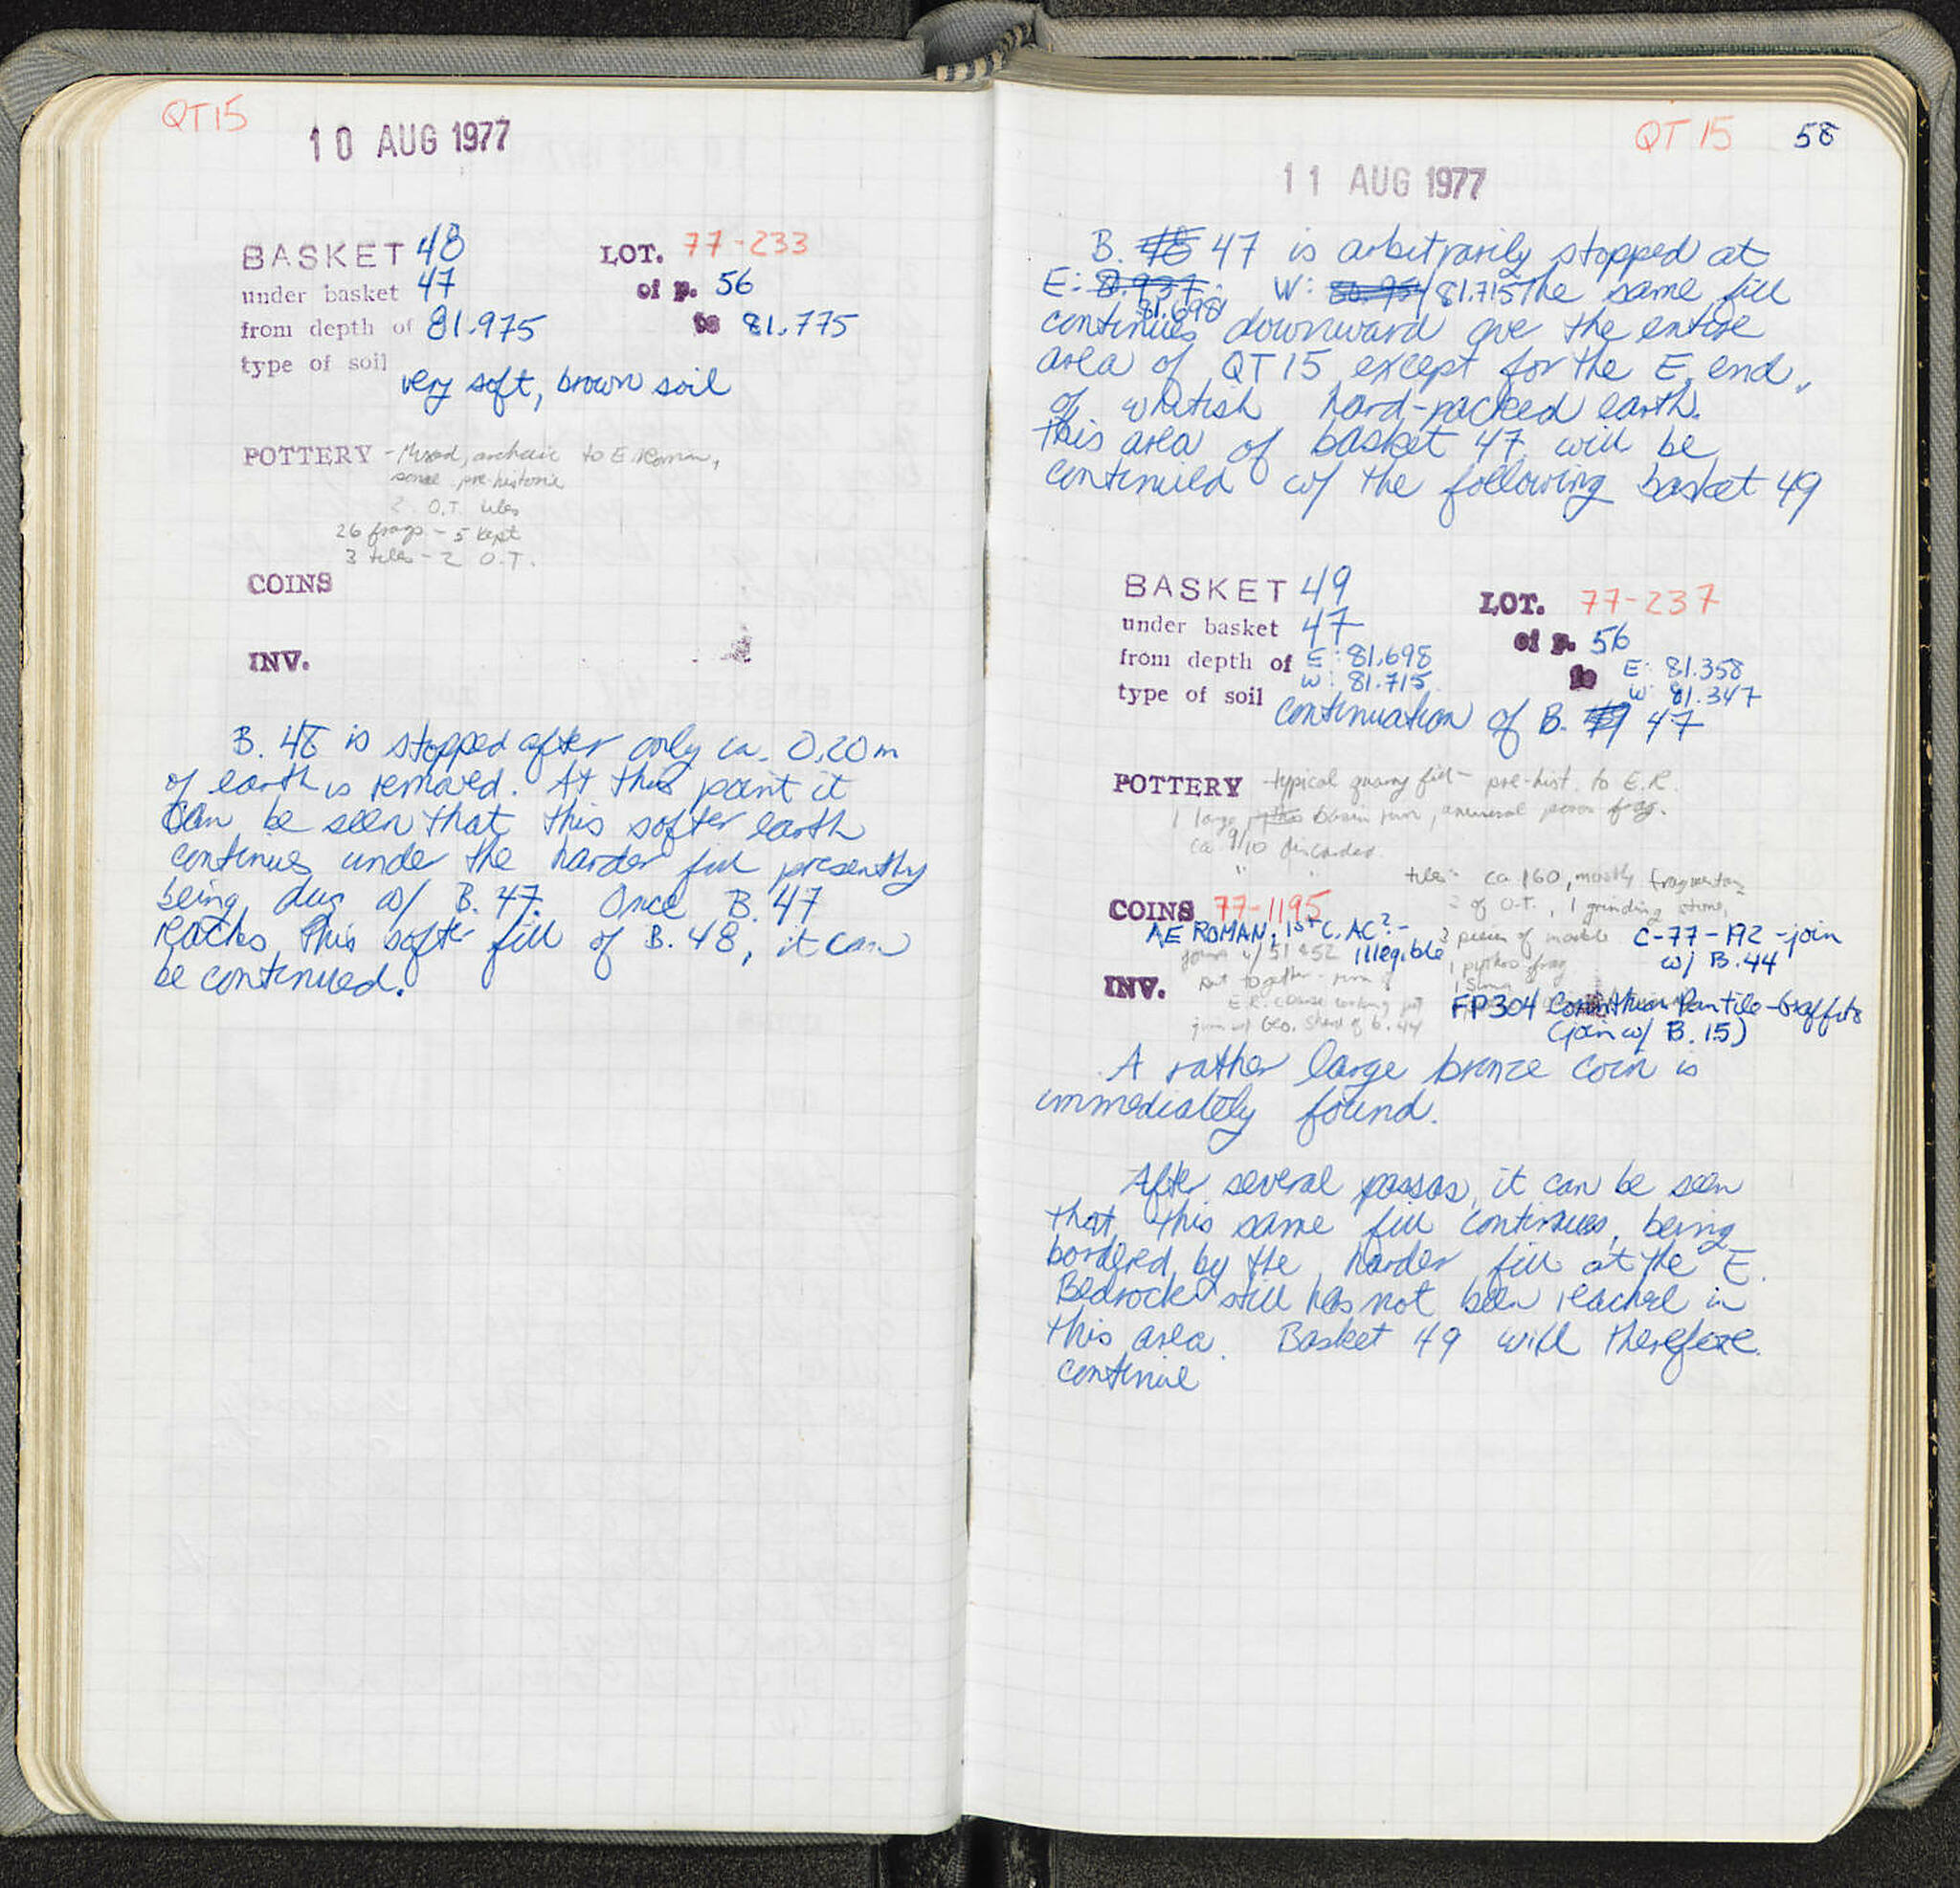 QT15
10 AUG 1977
BASKET 48 LOT. 77-233
under basket 47 of p. 56
from depth of 81.975 to 81.775
type of soil very soft, brown soil
POTTERY - Mixed, archaic to E. Roman,
some pre-historic
2 O.T. tiles
26 frags - 5 kept
3 tiles - 2 O.T.
COINS
INV.
B. 48 is stopped after only ca. 0.20m
of earth is removed. At this point it
can be seen that this softer earth
continues under the harder fill presently
being dug w/ B. 47. Once B. 47
reaches this softer fill of B. 48, it can
be continued.
QT 15 58
11 AUG 1977
B. 48 47 is arbitrarily stopped at
E: 81.698 W: 81.715 The same fill
continues downward over the entire
area of QT 15 except for the E. end,
of whitish hard-packed earth.
This area of basket 47 will be
continued w/ the following basket 49
BASKET 49 LOT. 77-237
under basket 47 of p. 56
from depth of E: 81.698 W: 81.715 to E: 81.358 W: 81.347
type of soil continuation of B. 47
POTTERY - typical quarry fill - pre-hist. to E.R.
1 large pithos basin rim, unusual frag.
ca 9/10 discarded
tiles - ca 160, mostly fragmentary
2 of O.T., 1 grinding stone,
COINS 77-1195
AE ROMAN, 1st C. AC? - illegible
3 pieces of marble
1 pithos frag
1 Sima
C-77-192 - join
w/ B. 44
joins w/ 51 & 52
put together - rim of
E.R. coarse cooking pot
join w/ Geo. sherd of b. 44
INV.
FP304 Corinthian Pantile - Graffito
(join w/ B. 15)
A rather large bronze coin is
immediately found.
After several passes, it can be seen
that this same fill continues, being
bordered by the harder fill at the E.
Bedrock still has not been reached in
this area. Basket 49 will therefore
continue